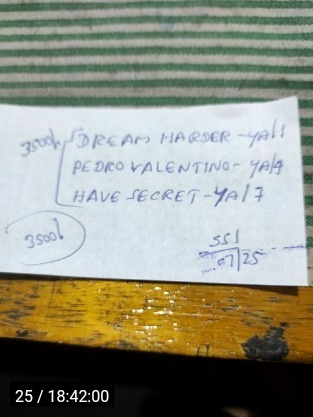 3500/ DREAM HARDER - YA/1
PEDRO VALENTINO - YA/4
HAVE SECRET - YA/7
3500/
SS1
07/25
25 / 18:42:00